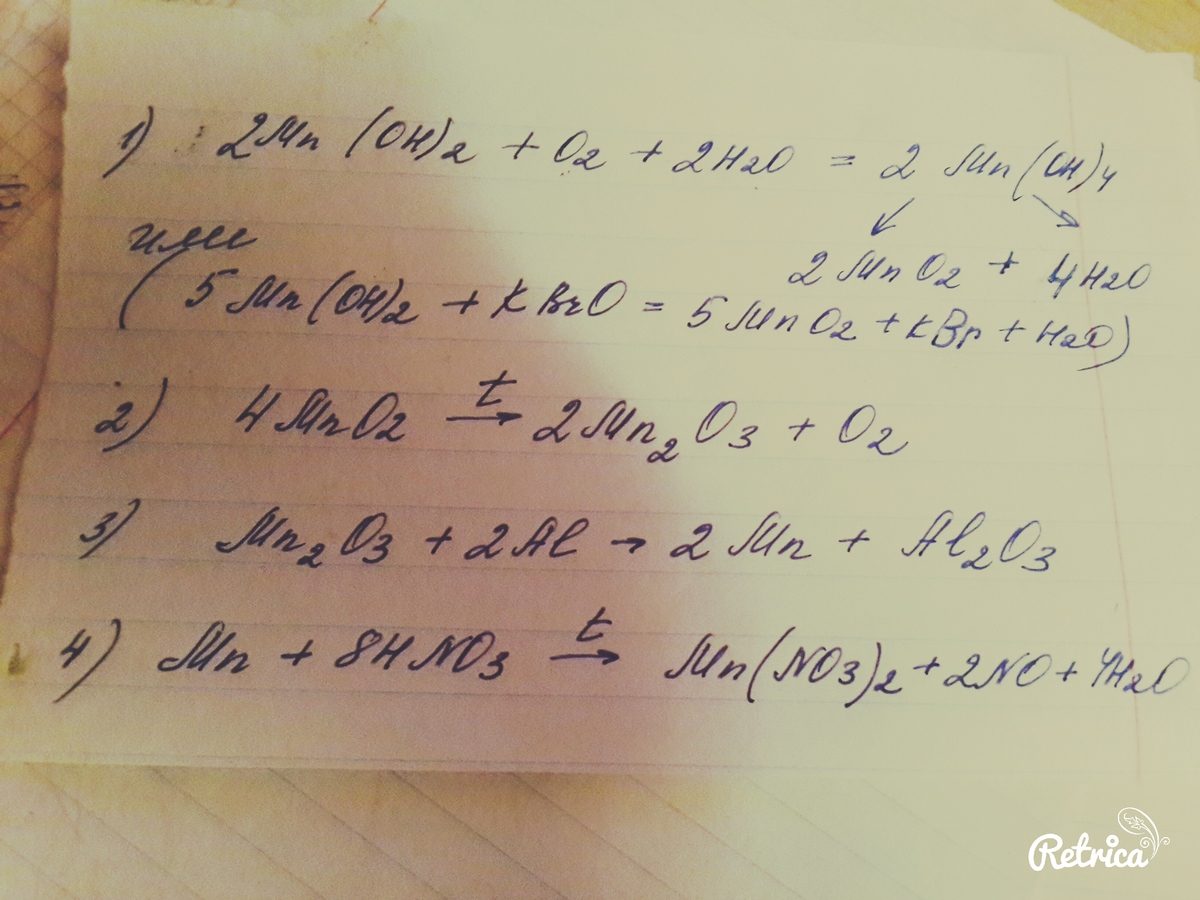 1) 2Mn(OH)₂ + O₂ + 2H₂O = 2 Mn(OH)₄
↙ ↘
2MnO₂ + 4H₂O
или
(5Mn(OH)₂ + KBrO = 5MnO₂ + KBr + H₂O)
2) 4MnO₂ →ᵗ 2Mn₂O₃ + O₂
3) Mn₂O₃ + 2Al → 2Mn + Al₂O₃
4) Mn + 8HNO₃ →ᵗ Mn(NO₃)₂ + 2NO + 4H₂O
Retrica